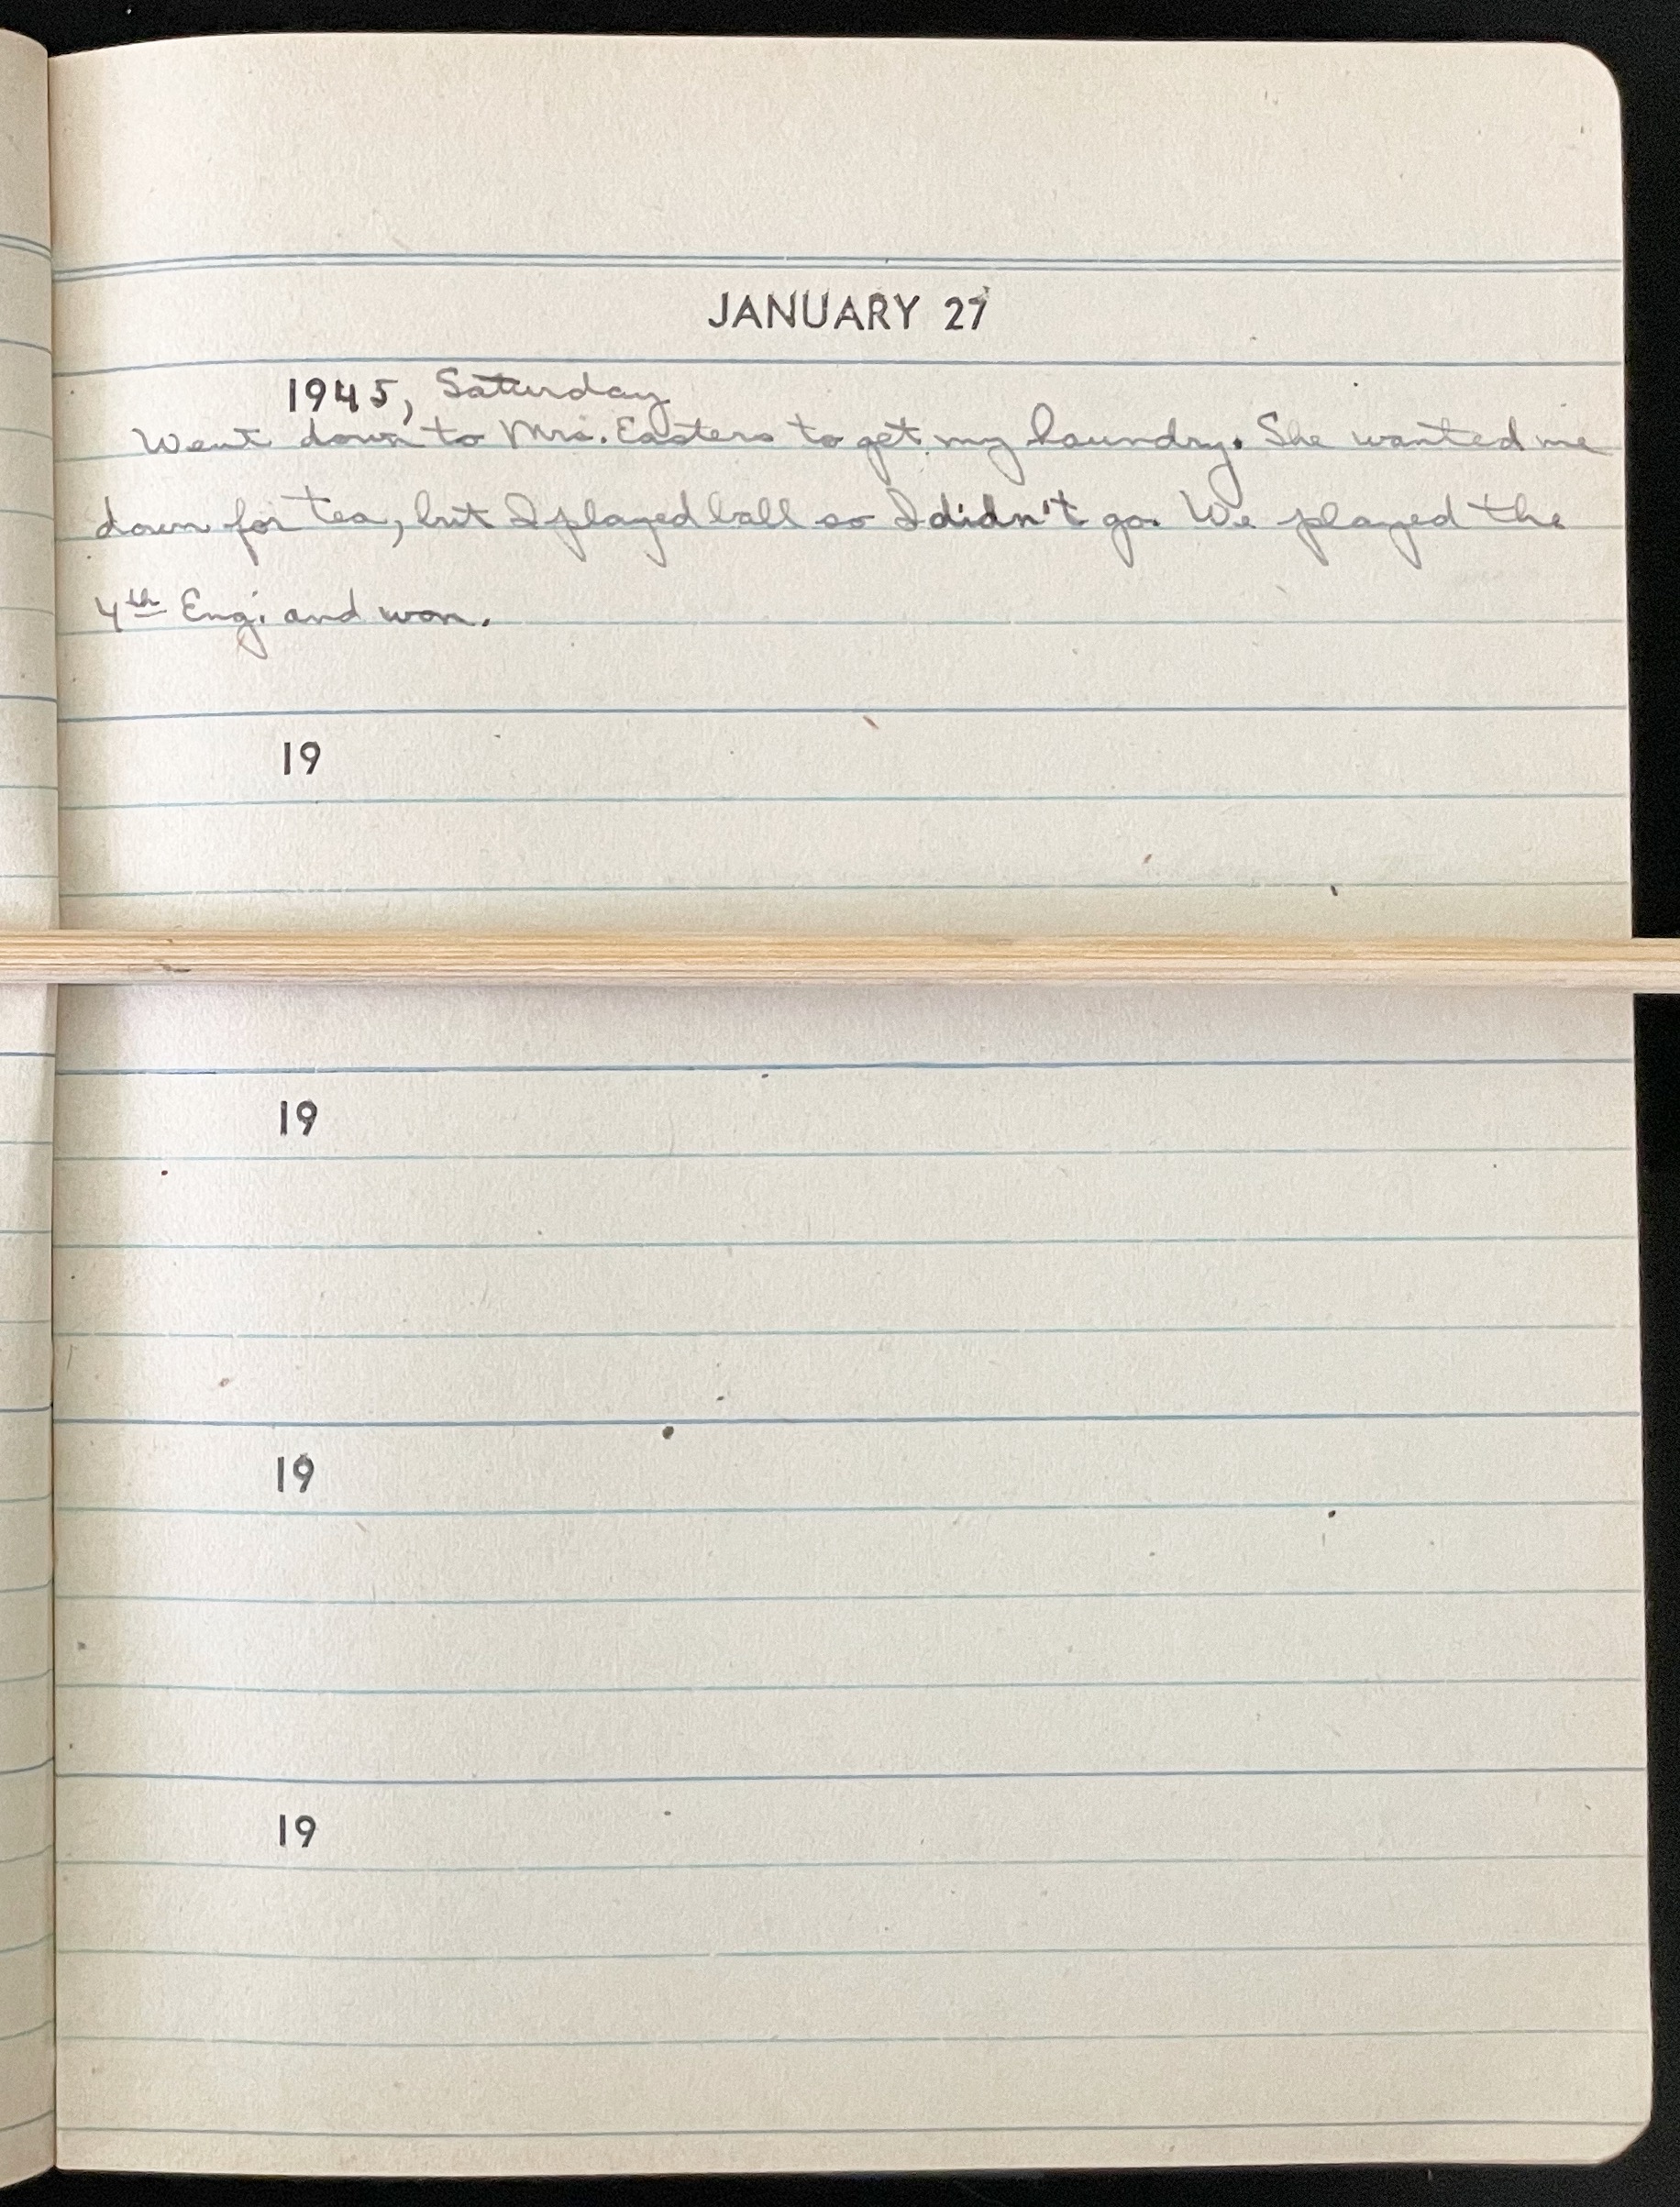 JANUARY 27
1945, Saturday
Went down to Mrs. Easters to get my laundry. She wanted me
down for tea, but I played ball so I didn't go. We played the
4th Eng. and won.
19
19
19
19